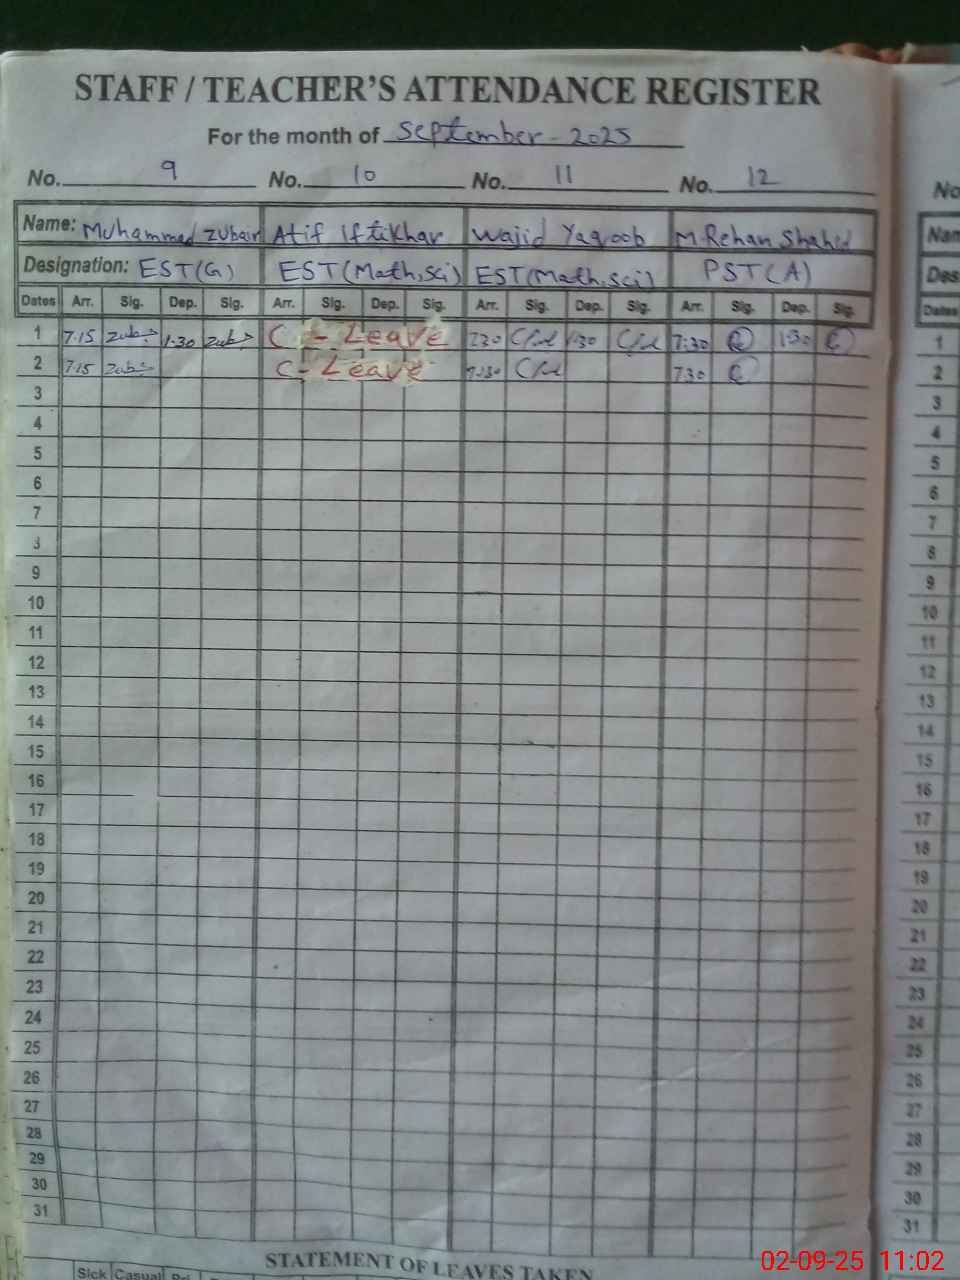 STAFF / TEACHER'S ATTENDANCE REGISTER
For the month of September - 2025
No. 9 No. 10 No. 11 No. 12 No
Name: Muhammed Zubair Atif Iftikhar Wajid Yaqoob M.Rehan Shahid Nam
Designation: EST(G) EST(Math,Sci) EST(Math,Sci) PST(A) Des
Dates Arr. Sig. Dep. Sig. Arr. Sig. Dep. Sig. Arr. Sig. Dep. Sig. Arr. Sig. Dep. Sig. Dates
1 7.15 Zub 1.30 Zub C - Leave 7.30 1.30 7:30 1:30 1
2 7.15 Zub C - Leave 7.30 7.30 2
3 3
4 4
5 5
6 6
7 7
8 8
9 9
10 10
11 11
12 12
13 13
14 14
15 15
16 16
17 17
18 18
19 19
20 20
21 21
22 22
23 23
24 24
25 25
26 26
27 27
28 28
29 29
30 30
31 31
STATEMENT OF LEAVES TAKEN
Sick Casual
02-09-25 11:02